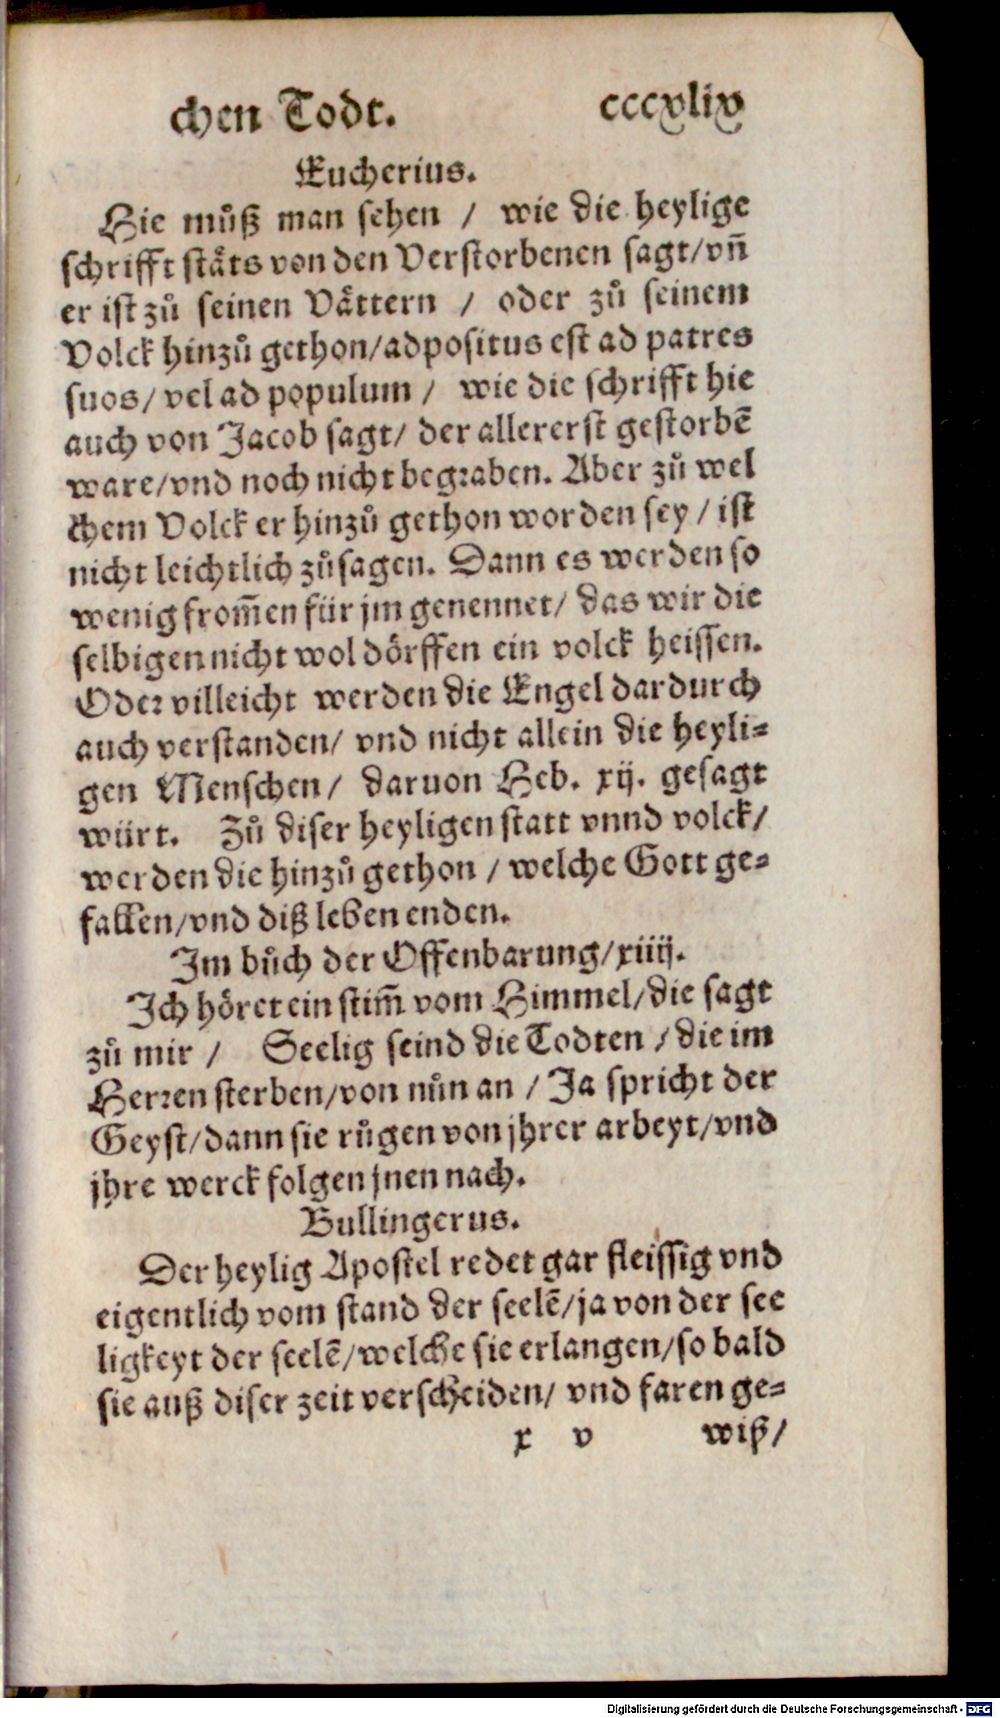 chen Todt. cccxlix
Eucherius.
Hie muͦß man sehen / wie die heylige
schrifft staͤts von den Verstorbenen sagt/vn̄
er ist zuͦ seinen Vaͤttern / oder zuͦ seinem
Volck hinzuͦ gethon/adpositus est ad patres
suos/ vel ad populum / wie die schrifft hie
auch von Jacob sagt/ der allererst gestorbē
ware/vnd noch nicht begraben. Aber zuͦ wel
chem Volck er hinzuͦ gethon worden sey / ist
nicht leichtlich zuͦsagen. Dann es werden so
wenig from̄en für jm genennet/ das wir die
selbigen nicht wol doͤrffen ein volck heissen.
Oder villeicht werden die Engel dardurch
auch verstanden/ vnd nicht allein die heyli-
gen Menschen/ daruon Heb. xij. gesagt
würt. Zuͦ diser heyligen statt vnnd volck/
werden die hinzuͦ gethon / welche Gott ge-
fallen/vnd diß leben enden.
Im buͦch der Offenbarung/xiiij.
Ich hoͤret ein stim̄ vom Himmel/die sagt
zuͦ mir / Seelig seind die Todten / die im
Herren sterben/von nuͦn an / Ja spricht der
Geyst/dann sie ruͦgen von jhrer arbeyt/vnd
jhre werck folgen jnen nach.
Bullingerus.
Der heylig Apostel redet gar fleissig vnd
eigentlich vom stand der seelē/ja von der see
ligkeyt der seelē/welche sie erlangen/so bald
sie auß diser zeit verscheiden/ vnd faren ge-
x v wiß/
Digitalisierung gefördert durch die Deutsche Forschungsgemeinschaft - DFG